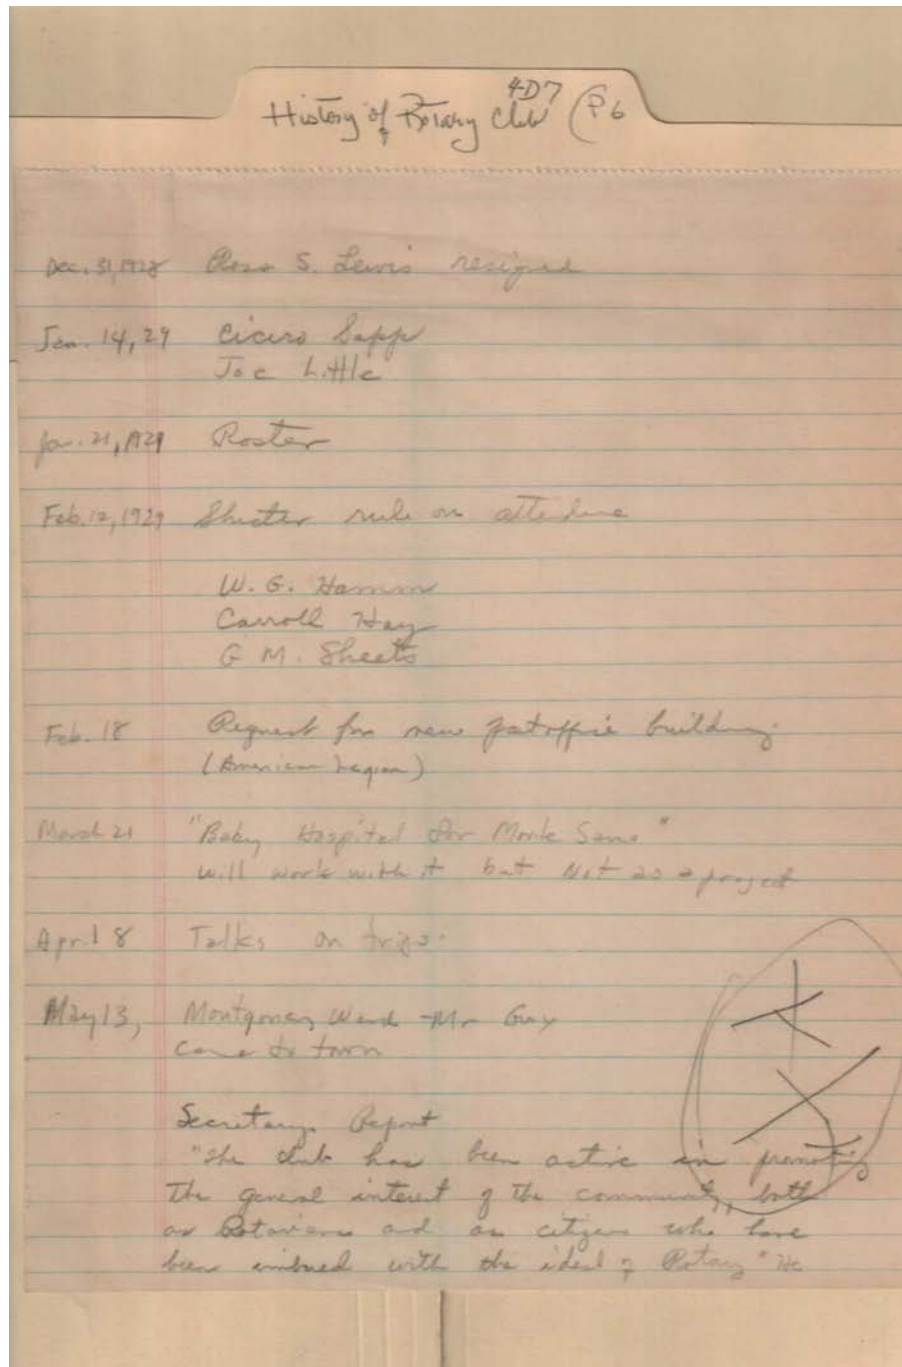 4D7
History of Rotary Club (P6
Dec. 31, 1928 S. Lewis resigned
Jan. 14, 29 Cicero Sapp
Joe Little
Jan. 21, 1929 Roster
Feb. 12, 1929 rule on
W. G. Hamm
Carroll Hay
G M. Sheets
Feb. 18 Request for new postoffice building.
(American Legion)
March 21 "Baby Hospital for Monte Sano"
will work with it but Not as a project
April 8 Talks on trips.
May 13, Montgomery Ward - Mr Guy
came to town
Secretarys Report
"The club has been active in promoting
the general interest of the community, both
as Rotarians and as citizens who have
been imbued with the ideal of Rotary" He